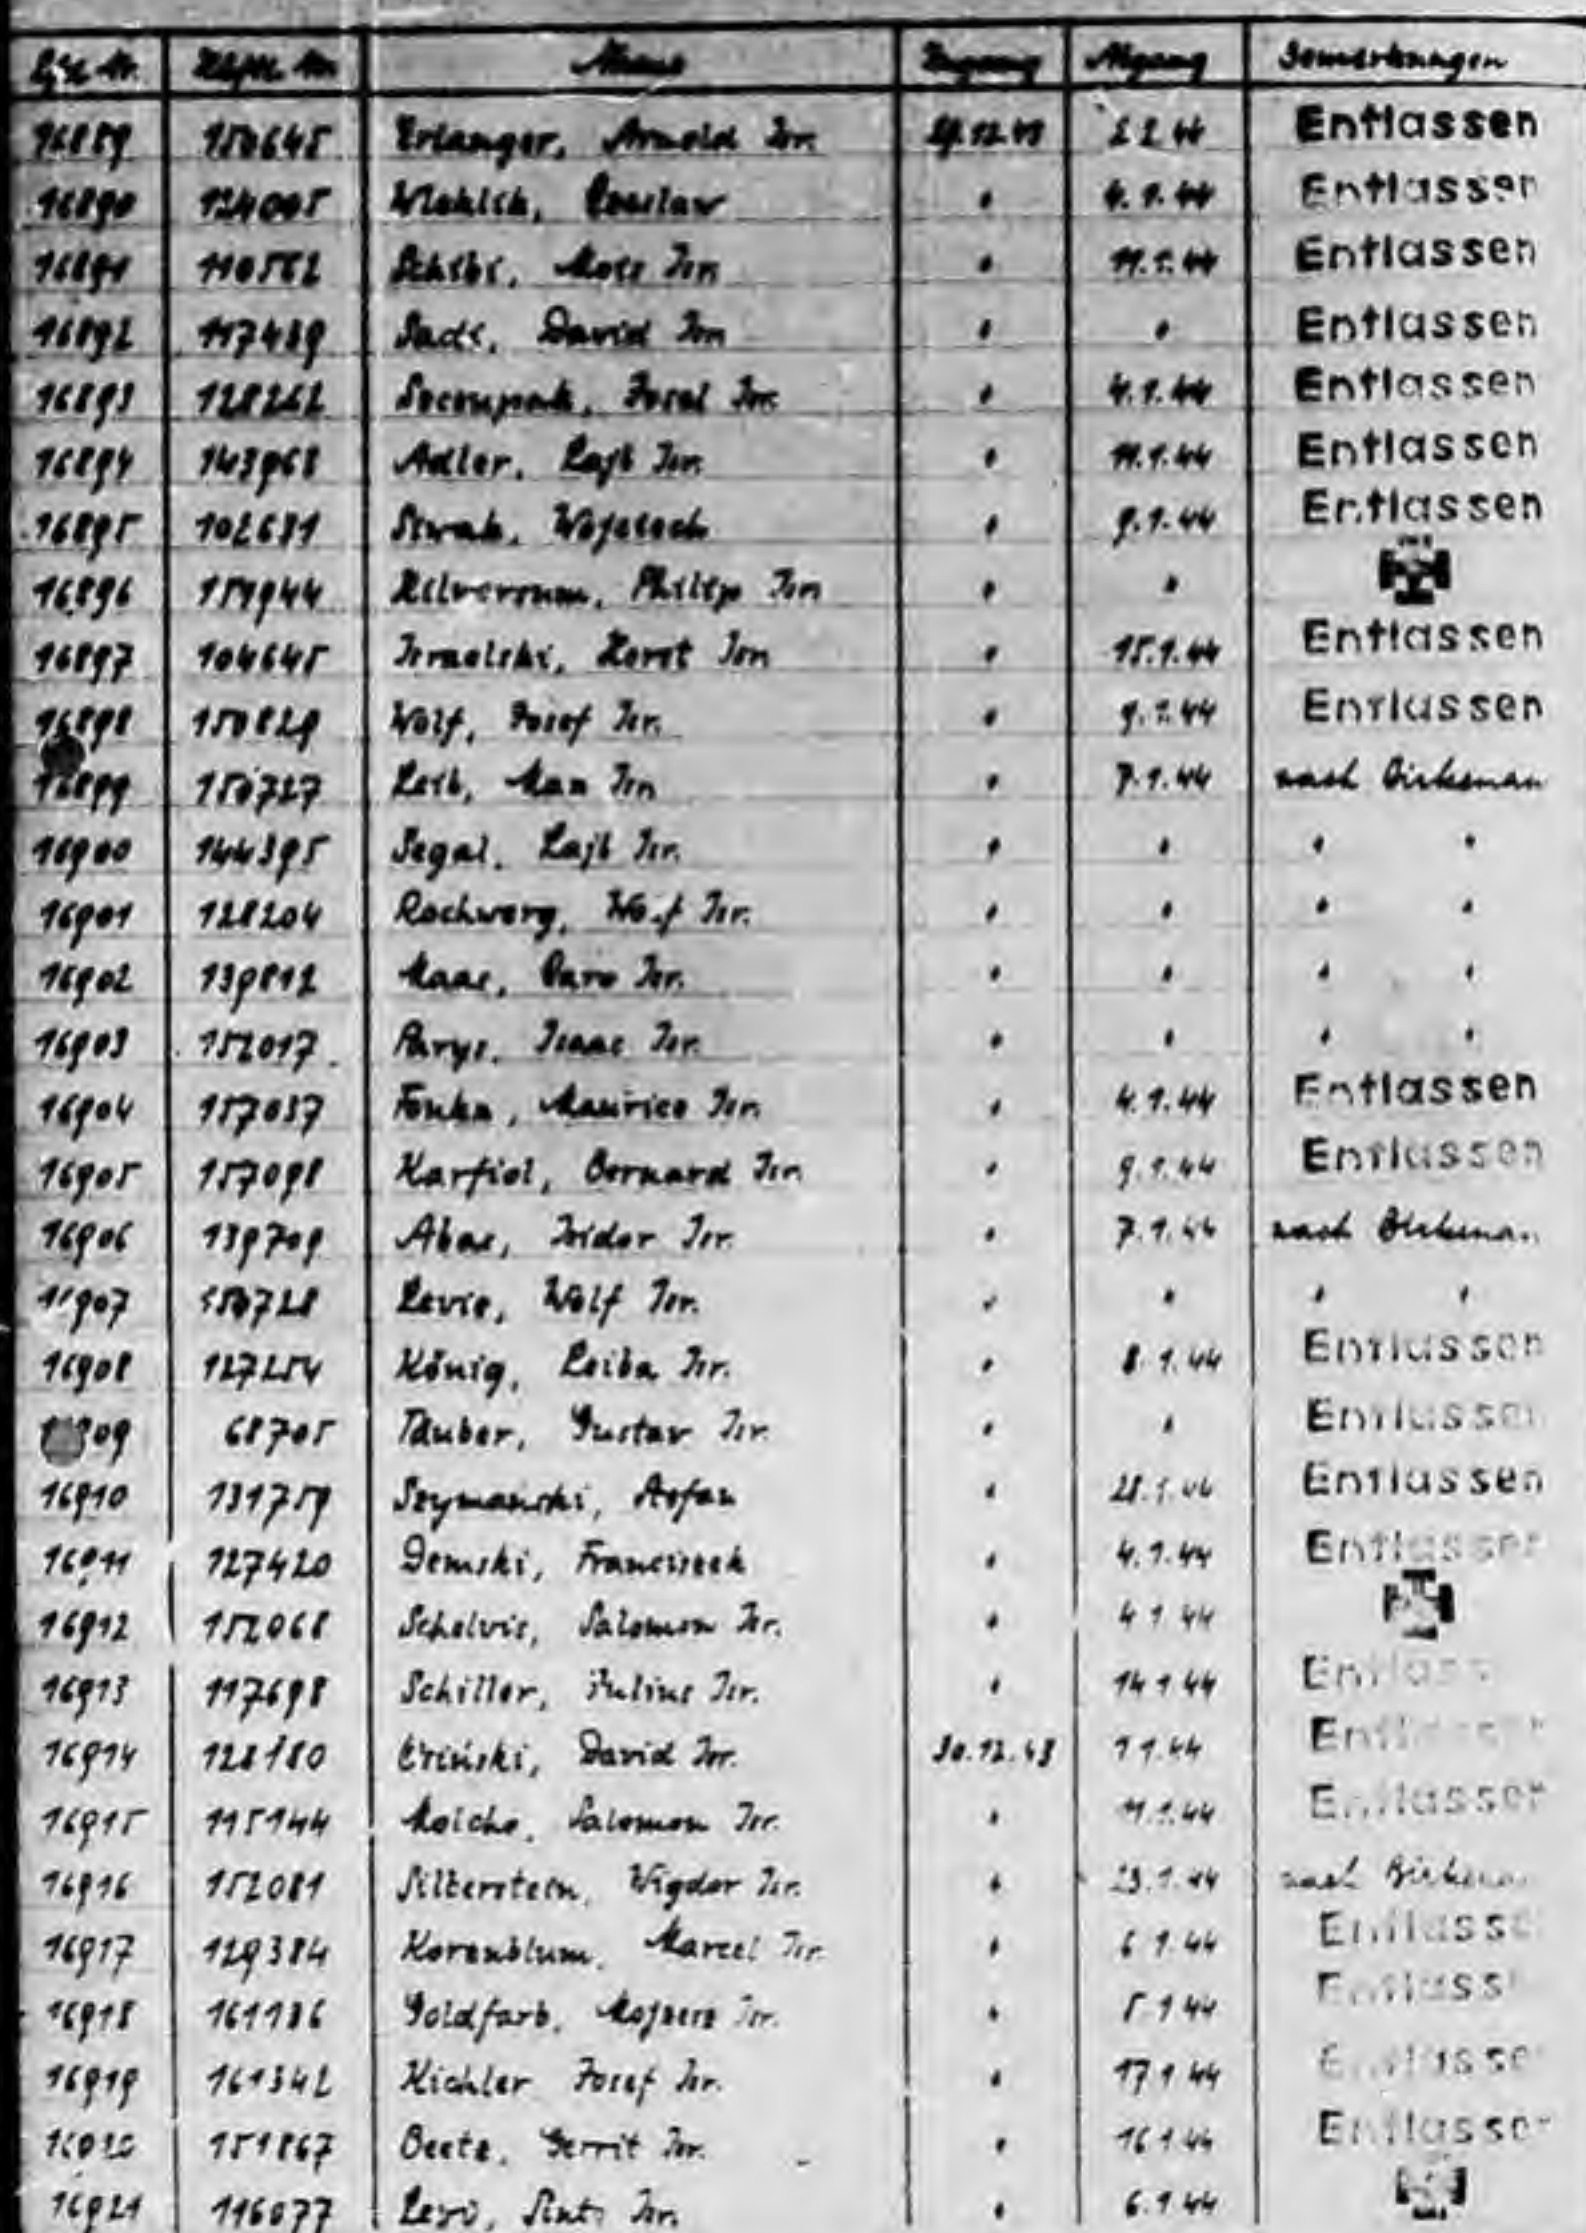 Lfd. Nr. Häftl. Nr. Name Zugang Abgang Bemerkungen
16889 150645 Erlanger, Arnold Isr. 29.12.43 2.2.44 Entlassen
16890 124005 " 4.1.44 Entlassen
16891 110562 Schibi, Mois Isr. " 11.1.44 Entlassen
16892 117489 Sadi, David Isr. " " Entlassen
16893 128262 " 4.1.44 Entlassen
16894 143968 Adler, Lajb Isr. " 11.1.44 Entlassen
16895 102681 Wojciech " 9.1.44 Entlassen
16896 151944 Hilversum, Philip Isr. " "
16897 104645 Israelski, Horst Isr. " 15.1.44 Entlassen
16898 150829 Wolf, Josef Isr. " 9.1.44 Entlassen
16899 150727 Leib, Max Isr. " 7.1.44 nach Birkenau
16900 144395 Segal, Lajb Isr. " " " "
16901 128204 Rochwerg, Wolf Isr. " " " "
16902 139812 Isr. " " " "
16903 152017 Parys, Isaac Isr. " " " "
16904 157037 Maurice Isr. " 4.1.44 Entlassen
16905 157098 Karfiol, Bernard Isr. " 9.1.44 Entlassen
16906 139709 Abas, Isidor Isr. " 7.1.44 nach Birkenau
16907 150728 Levie, Wolf Isr. " " " "
16908 127254 König, Leiba Isr. " 8.1.44 Entlassen
16909 68705 Täuber, Gustav Isr. " " Entlassen
16910 131759 Szymański, Stefan " 28.1.44 Entlassen
16911 127420 Demski, Franciszek " 4.1.44 Entlassen
16912 152068 Schelvis, Salomon Isr. " 4.1.44
16913 117698 Schiller, Julius Isr. " 14.1.44 Entlassen
16914 128180 David Isr. 30.12.43 1.1.44 Entlassen
16915 115144 Molcho, Salomon Isr. " 11.1.44 Entlassen
16916 152081 Silberstein, Wigdor Isr. " 23.1.44 nach Birkenau
16917 129384 Korenblum, Marcel Isr. " 6.1.44 Entlassen
16918 161136 Goldfarb, Mojsesz Isr. " 5.1.44 Entlassen
16919 161342 Kichler Josef Isr. " 17.1.44 Entlassen
16920 151867 Beetz, Gerrit Isr. " 16.1.44 Entlassen
16921 116077 Levi, Isr. " 6.1.44